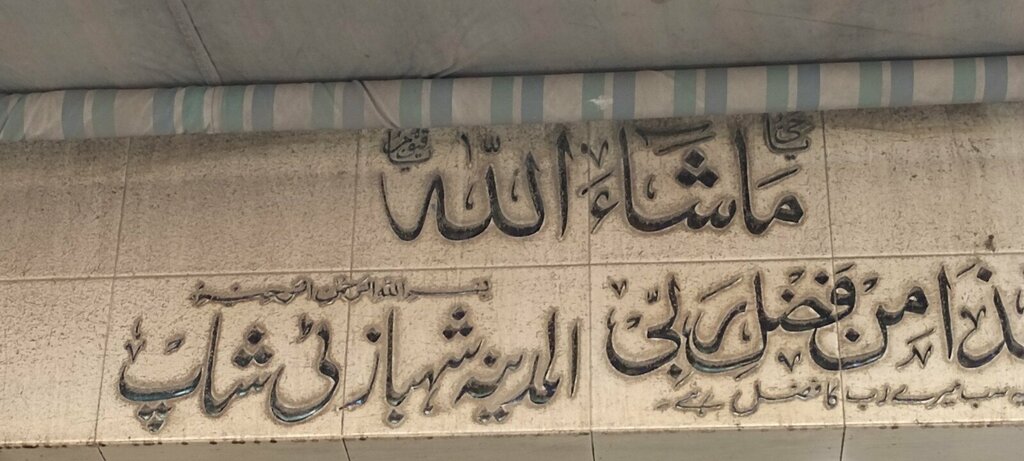 یا حی یا قیوم
ما شاء الله
ھذا من فضل ربی
یہ سب میرے رب کا فضل ہے
بسم الله الرحمن الرحیم
المدینہ شہباز ٹی شاپ